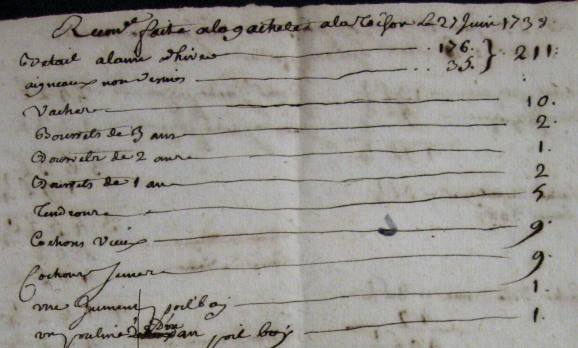 Reconüe faite a la gacheliere a la Toison Le 27 Juin 173
Betail a laine d'hiver 176. } 211.
aigneaux non vernis 35.
Vaches 10.
Bourrets de 3 ans 2.
Bourrets de 2 ans 1.
Bourrets de 1 an 2
5
Cochons vieux 9.
Cochons Jeunes 9.
une Jument poil bay 1.
un pouline d'un an poil bay 1.